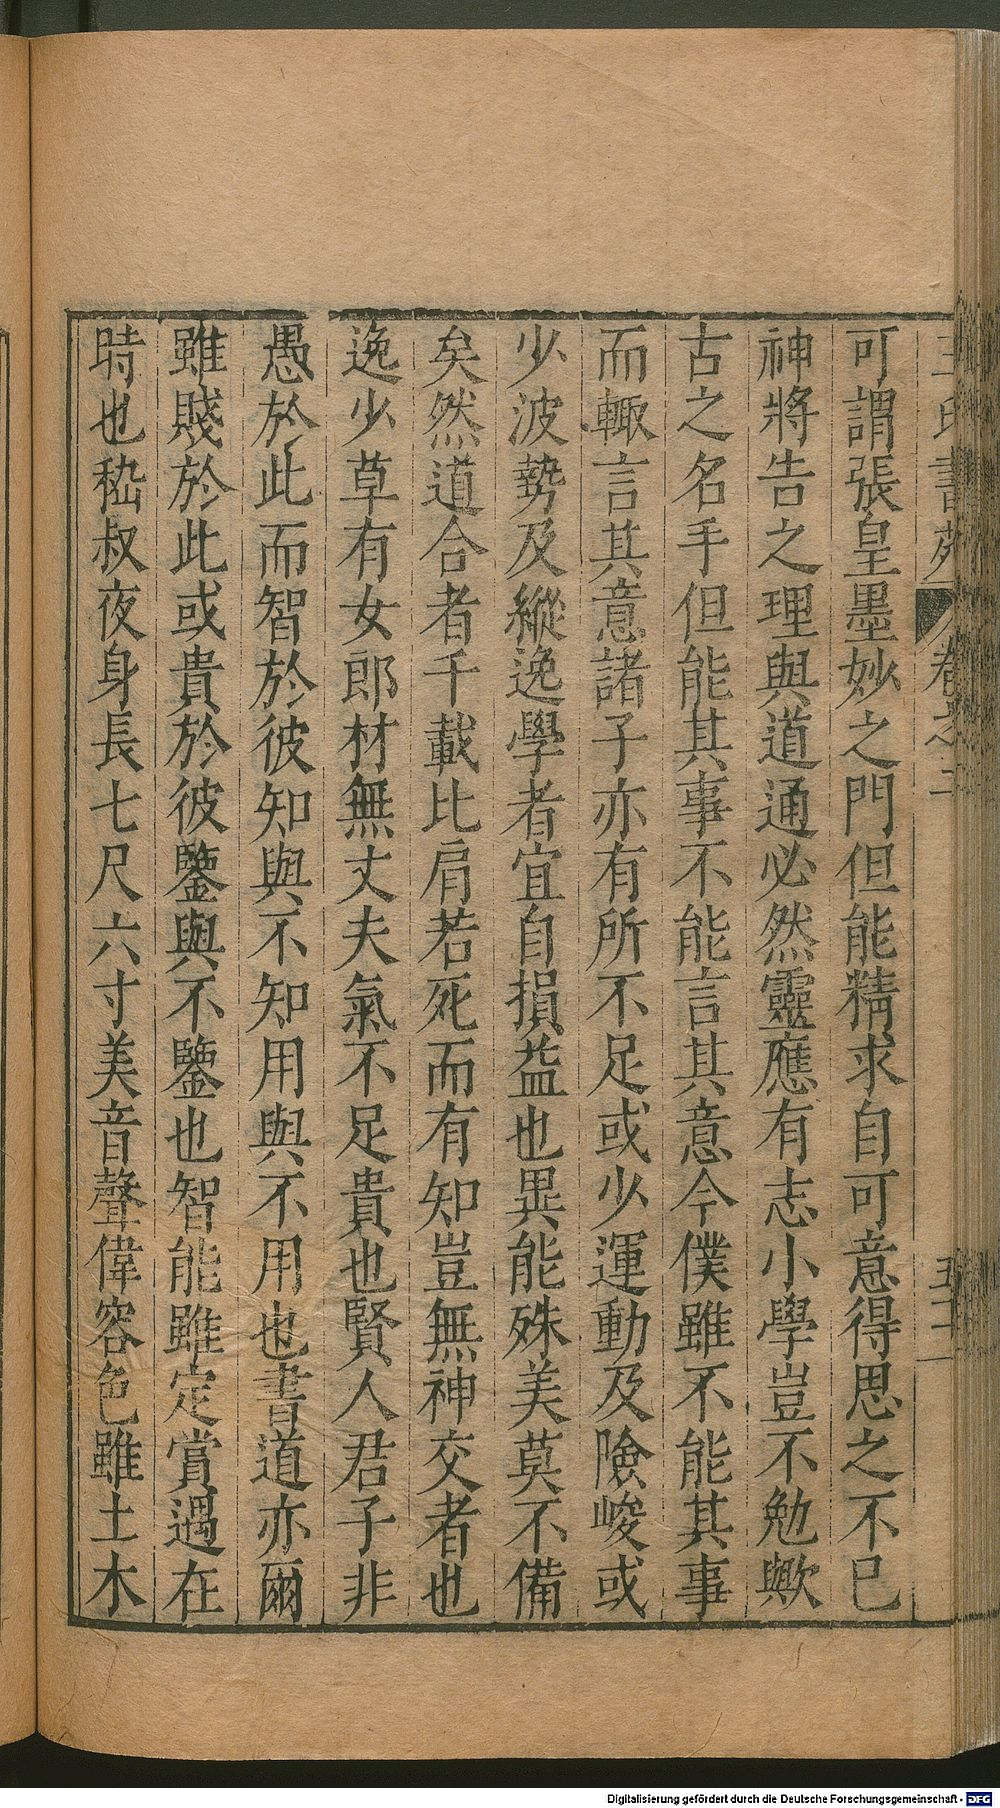 王氏書苑 卷之二
可謂張皇墨妙之門但能精求自可意得思之不已
神將告之理與道通必然靈應有志小學豈不勉歟
古之名手但能其事不能言其意今僕雖不能其事
而輙言其意諸子亦有所不足或少運動及險峻或
少波勢及縱逸學者宜自損益也異能殊美莫不備
矣然道合者千載比肩若死而有知豈無神交者也
逸少草有女郎材無丈夫氣不足貴也賢人君子非
愚於此而智於彼知與不知用與不用也書道亦爾
雖賤於此或貴於彼鑒與不鑒也智能雖定賞遇在
時也嵇叔夜身長七尺六寸美音聲偉容色雖土木
Digitalisierung gefördert durch die Deutsche Forschungsgemeinschaft - DFG